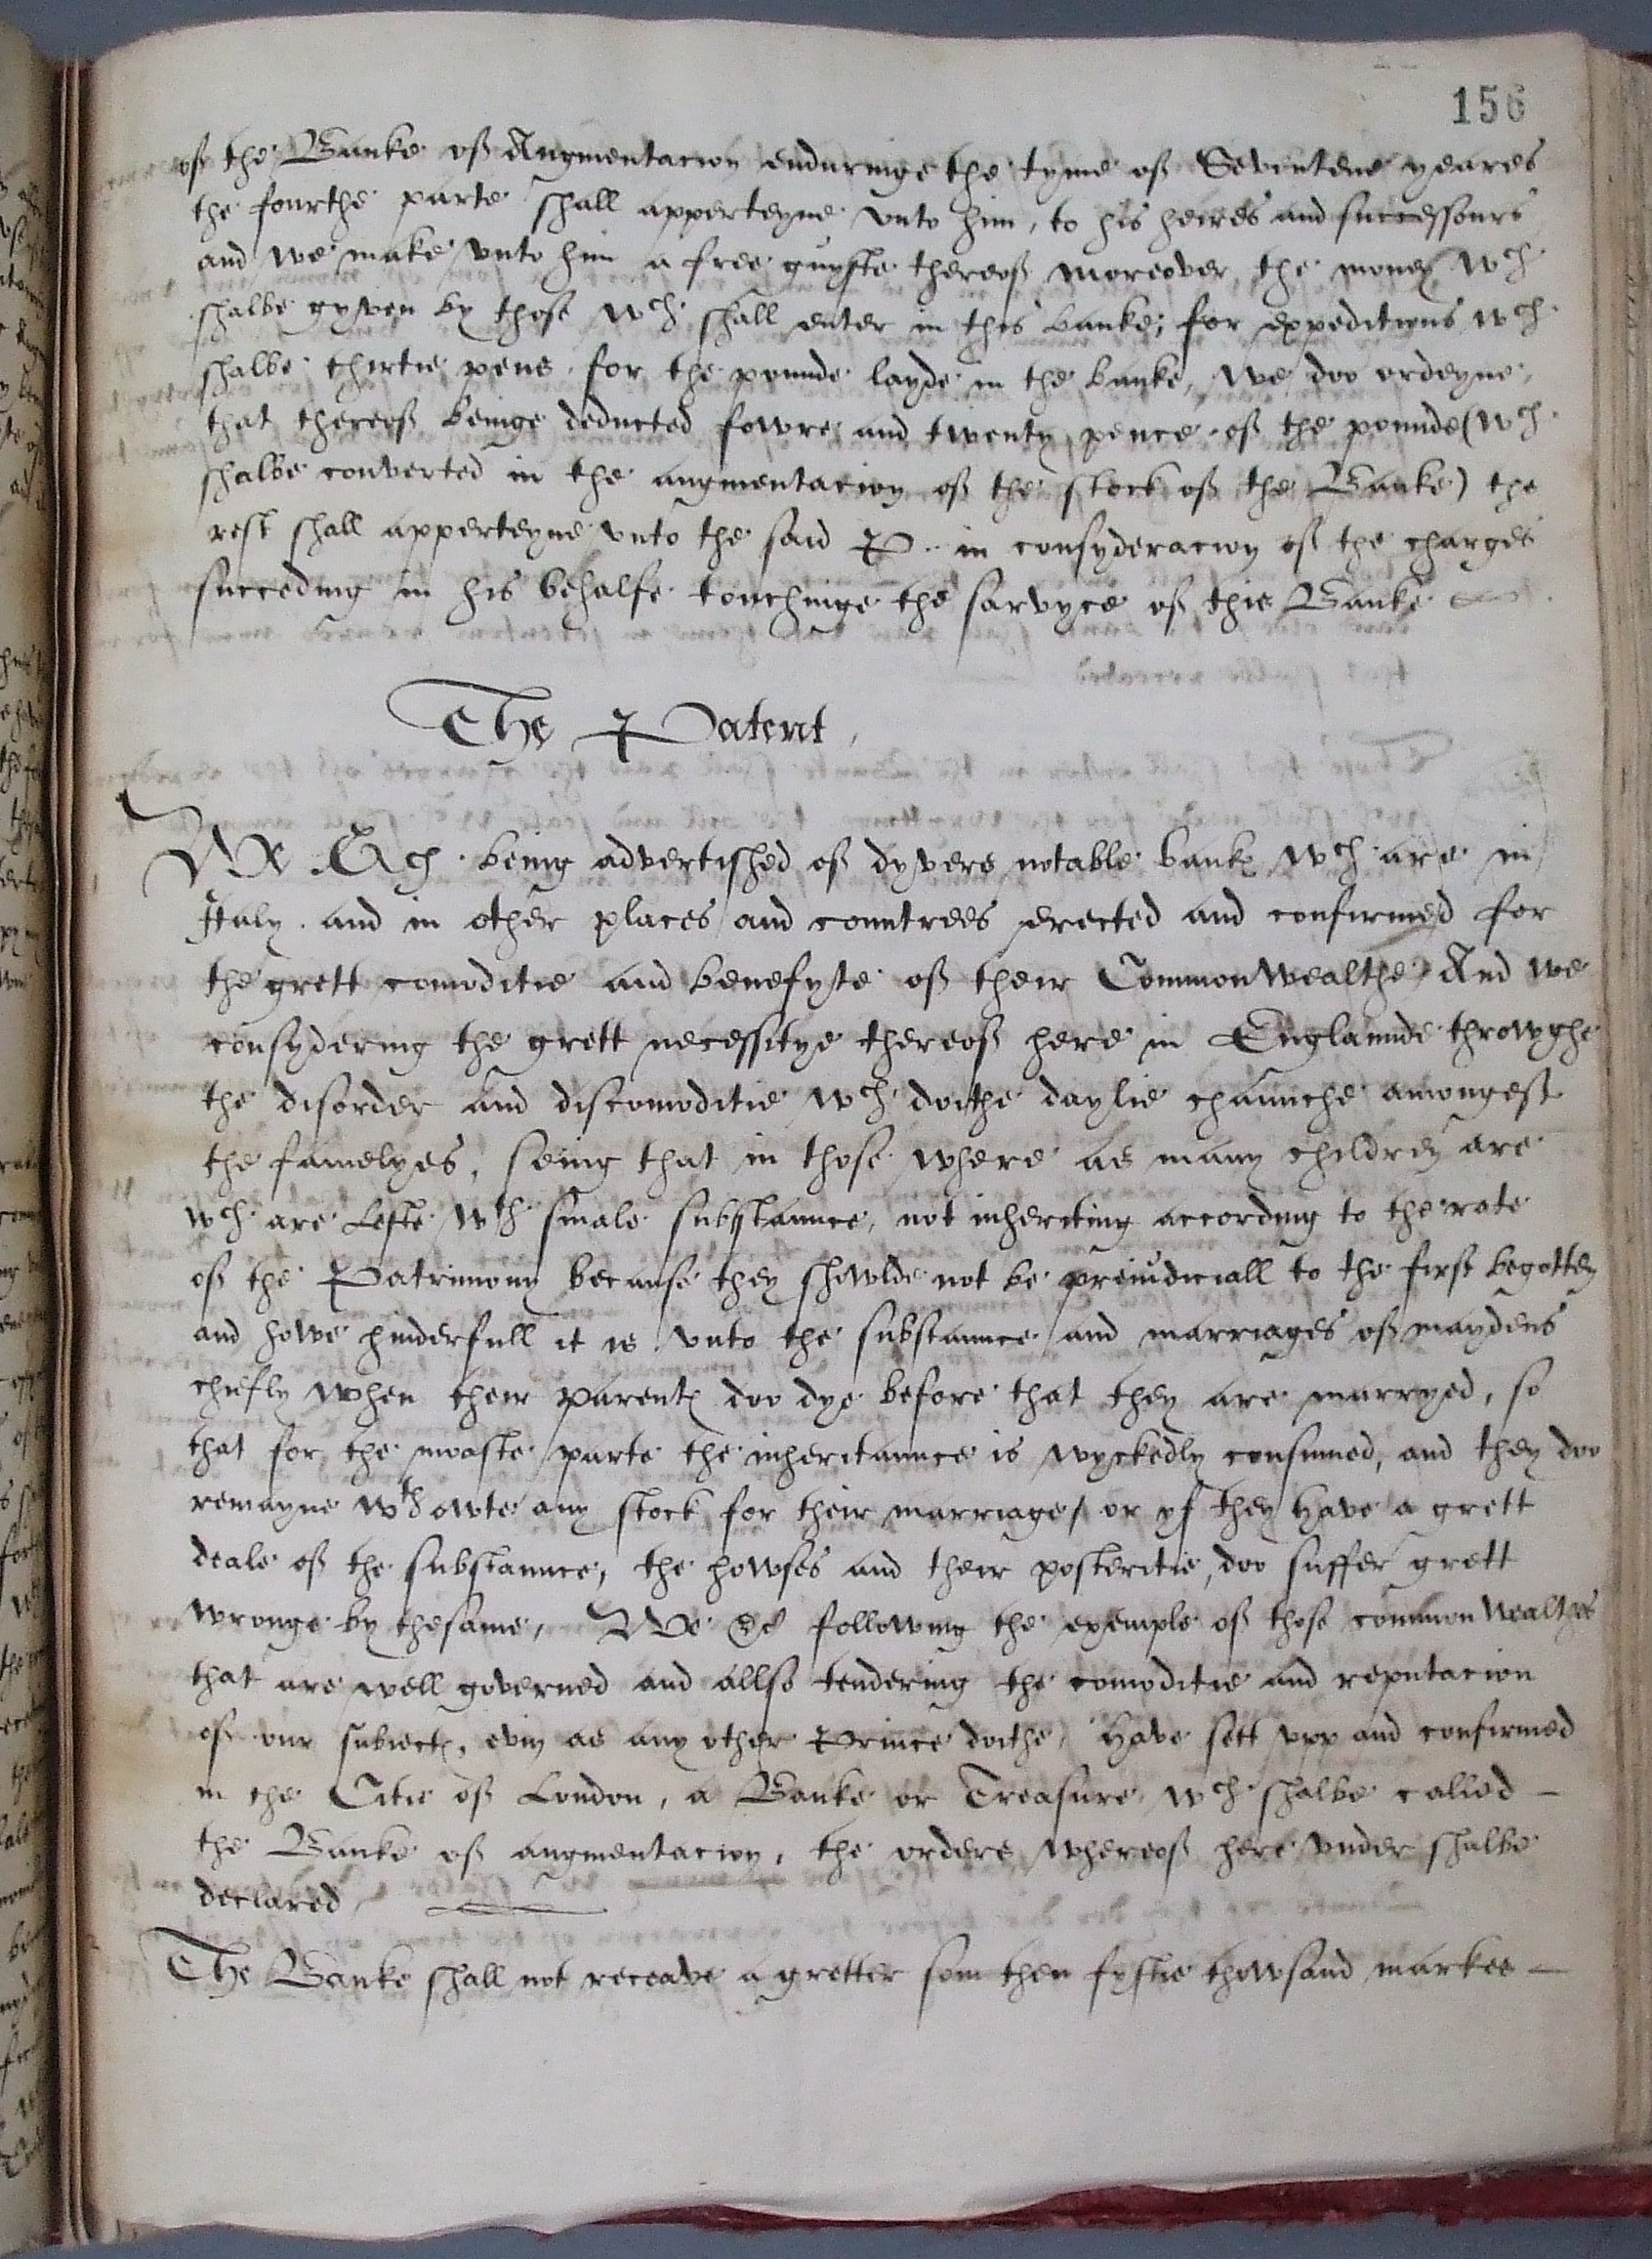 156
of the Banke of Augmentacion enduringe the tyme of Seventene yeares
the fourthe parte shall apperteyne vnto him, to his heires and successours
and we make vnto him a free guyfte thereof moreover, the money wch
shalbe gyven by those wch shall enter in this banke, for expeditions wch
shalbe thirtie pens for the pounde layde in the banke, we doo ordeyne,
that thereof beinge deducted fowre and twenty pence of the pounde (wch
shalbe converted in the augmentacion of the stock of the Banke) the
rest shall apperteyne vnto the said P. in consyderacion of the charges
succeding in his behalfe touchinge the sarvyce of this Banke
The Patent,
We &c. being advertished of dyvers notable bankes wch are in
Italy. and in other places and countrees erected and confirmed for
the grett comoditie and benefyte of their Commonwealthe, And we
consydering the grett necessitye thereof here in Englaunde throwghe
the disorder and discomoditie wch doithe daylie chaunche amongest
the famelyes, seing that in those where as many children are
wch are lefte wth smale substaunce, not inheriting according to the rate
of the Patrimony because they showlde not be preiudiciall to the first begotten
and howe hinderfull it is vnto the substaunce and marriages of maydens
chiefly when their parentes doo dye before that they are marryed, so
that for the moaste parte the inheritaunce is wyckedly consumed, and they doo
remayne wthowte any stock for their marriage, or yf they have a grett
deale of the substaunce, the howses and their posteritie, doo suffer grett
wronge by thesame, We &c following the exemple of those common wealthes
that are well governed and allso tendering the comoditie and reputacion
of our subiectes, evin as any other Prince doithe, Have sett vpp and confirmed
in the Citie of London, a Banke or Treasure wch shalbe called -
the Banke of augmentacion, the orders whereof here vnder shalbe
declared
The Banke shall not receave a gretter som then fyftie thowsand markes -